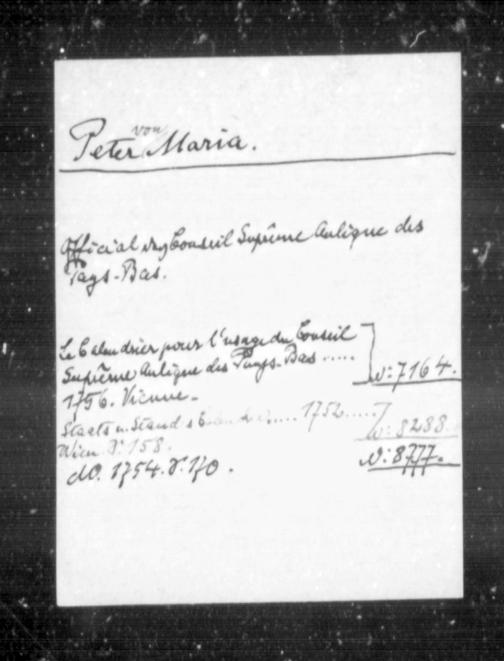 von
Peter Maria.
Official Conseil Suprême Aulique des
Pays-Bas.
Le Calendrier pour l'usage du Conseil
Suprême Aulique des Pays-Bas .....
1756. Vienne. N: 7164.
Staats u. Stand s ..... 1752 .....
Wien. S. 158. N: 8288.
dO. 1754. S. 170. N: 8777.